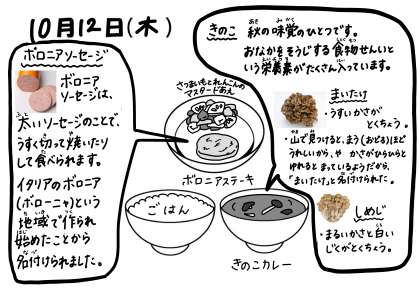 10月12日(木)
ボロニアソーセージ
ボロニア
ソーセージは、
太いソーセージのことで、
うすく切って焼いたり
して食べられます。
イタリアのボロニア
(ボローニャ)という
地域で作られ
始めたことから
名付けられました。
さつまいもとれんこんの
マスタードあえ
ボロニアステーキ
ごはん
きのこカレー
きのこ
秋の味覚のひとつです。
おなかをそうじする食物せんいと
いう栄養素がたくさん入っています。
まいたけ
・うすいかさが
とくちょう。
・山で見つけると、まう(おどる)ほど
うれしいから、や かさがひらひらと
ゆれると まっているようだから、
「まいたけ」と名付けられた。
しめじ
・まるいかさと白い
じくがとくちょう。